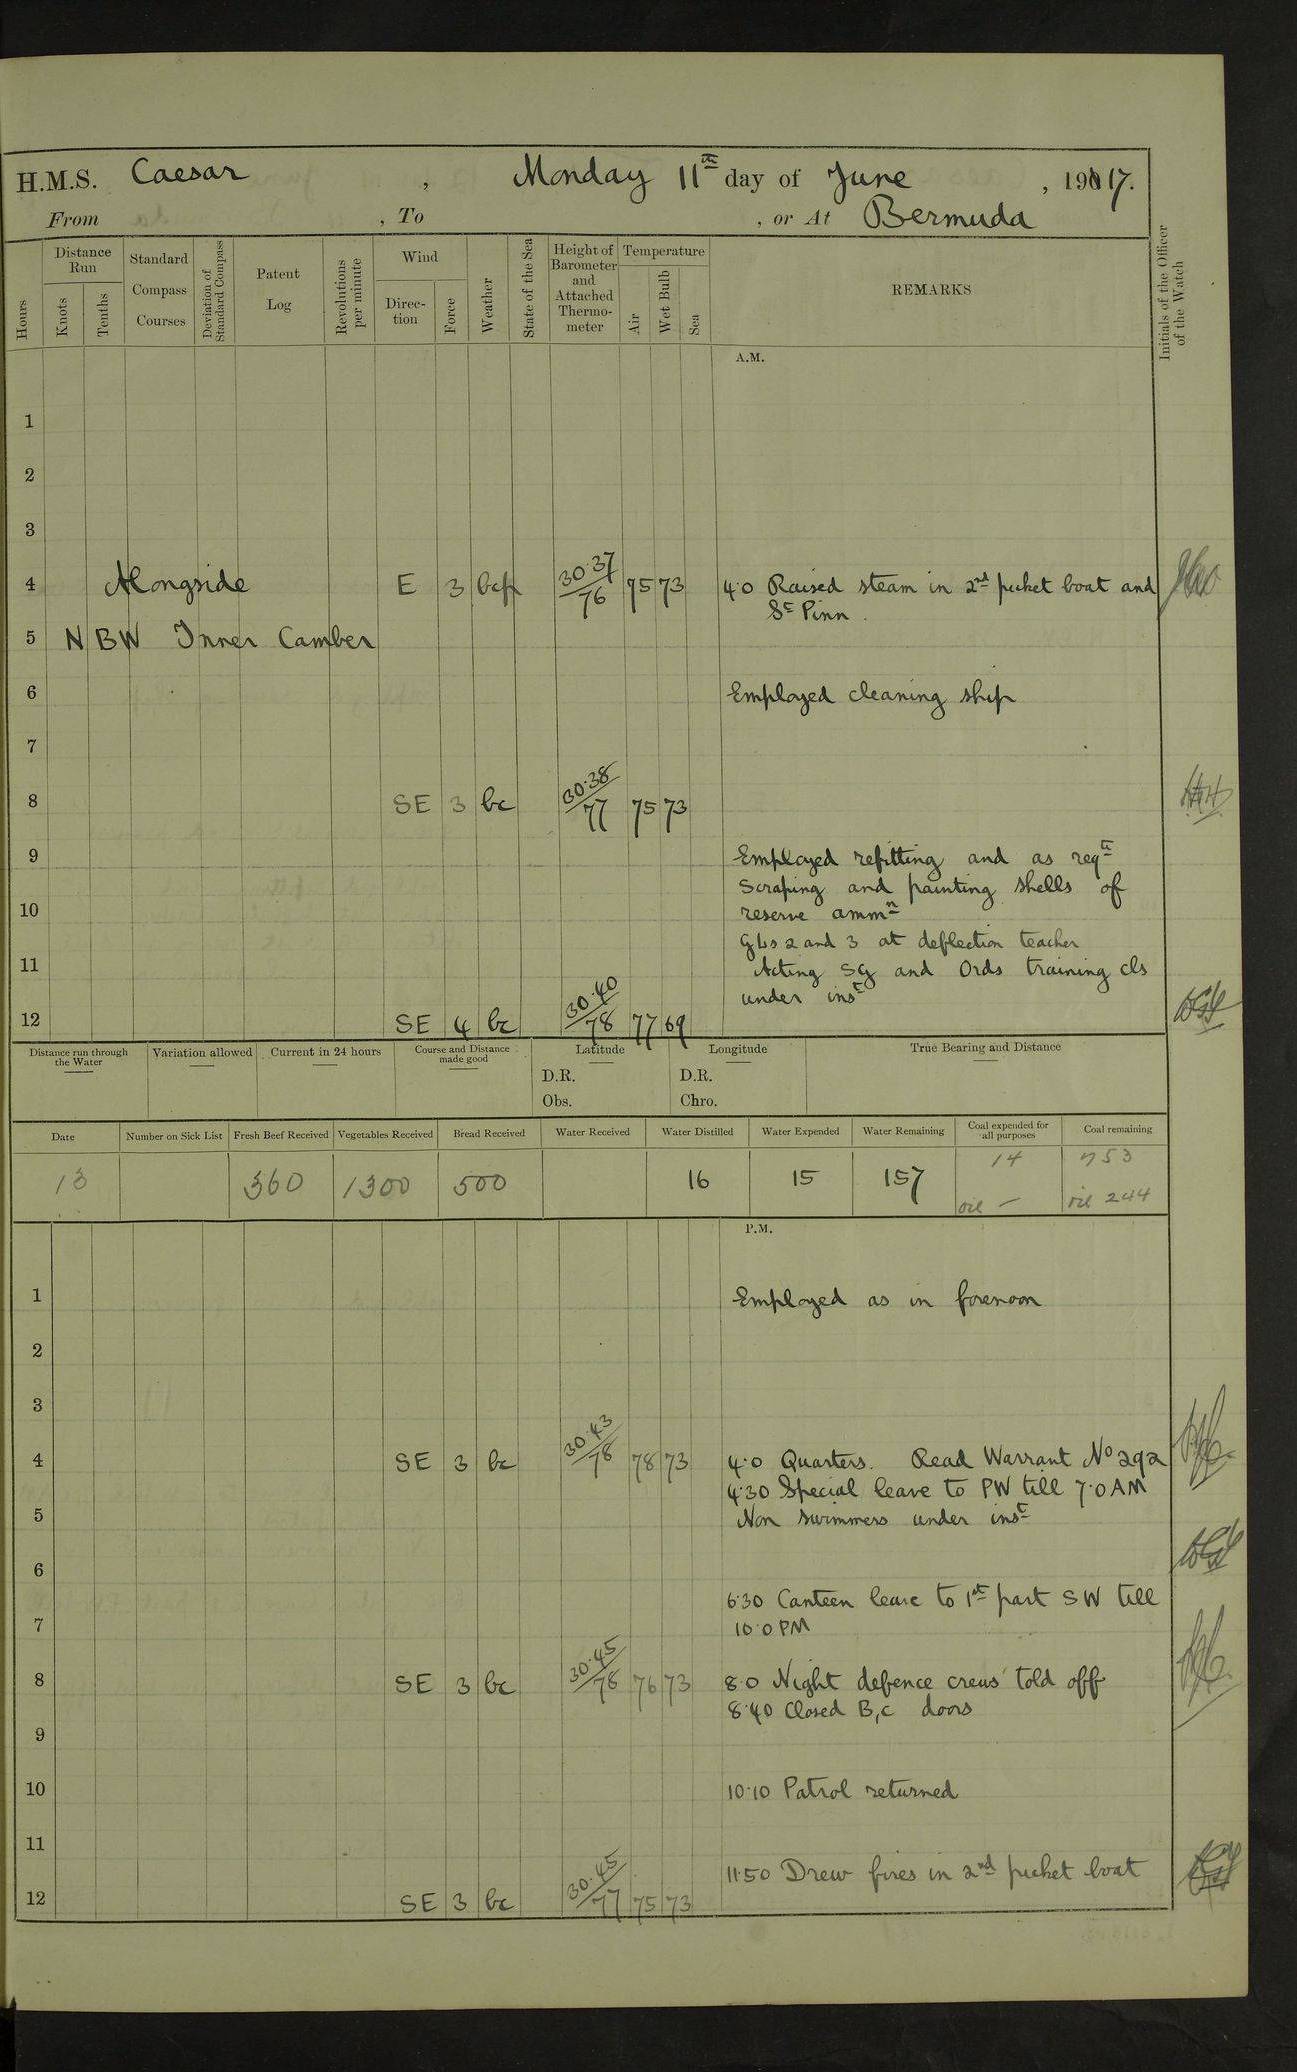 H.M.S. Caesar , Monday 11th day of June , 1917.
From , To , or At Bermuda
Hours
Distance Run
Knots
Tenths
Standard Compass Courses
Deviation of Standard Compass
Patent Log
Revolutions per minute
Wind
Direc-tion
Force
Weather
State of the Sea
Height of Barometer and Attached Thermo-meter
Temperature
Air
Wet Bulb
Sea
REMARKS
Initials of the Officer of the Watch
A.M.
1
2
3
4 Alongside E 3 bcp 30.37/76 75 73 4.0 Raised steam in 2nd picket boat and
St Pinn.
5 N B W Inner Camber
6 Employed cleaning ship
7
8 SE 3 bc 30.38/77 75 73
9 Employed refitting and as reqte
Scraping and painting shells of
10 reserve ammn
GLs 2 and 3 at deflection teacher
11 Acting SG and Ords training cls
under inst
12 SE 4 bc 30.40/78 77 69
Distance run through the Water
Variation allowed
Current in 24 hours
Course and Distance made good
Latitude
D.R.
Obs.
Longitude
D.R.
Chro.
True Bearing and Distance
Date Number on Sick List Fresh Beef Received Vegetables Received Bread Received Water Received Water Distilled Water Expended Water Remaining Coal expended for all purposes Coal remaining
13 360 1300 500 16 15 157 14 753
oil — oil 244
P.M.
1 Employed as in forenoon
2
3
4 SE 3 bc 30.43/78 78 73 4.0 Quarters. Read Warrant No 292
4.30 Special leave to PW till 7.0 AM
5 Non swimmers under inst
6
6.30 Canteen leave to 1st part SW till
7 10.0 PM
8 SE 3 bc 30.45/78 76 73 8.0 Night defence crews told off
8.40 Closed B,C doors
9
10 10.10 Patrol returned
11
11.50 Drew fires in 2nd picket boat
12 SE 3 bc 30.45/77 75 73